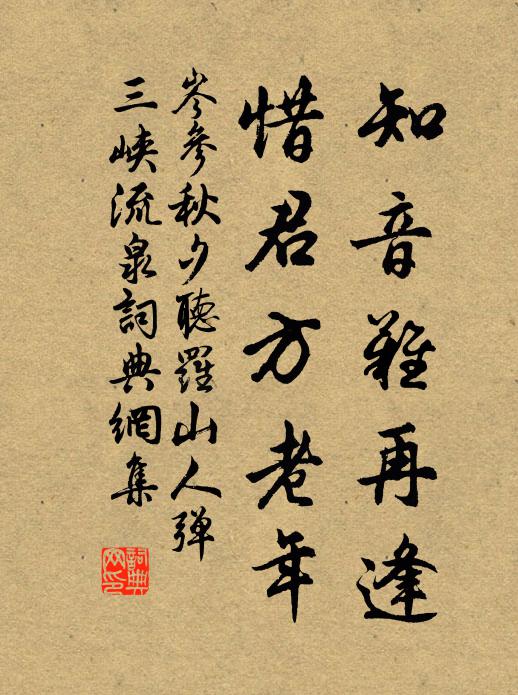 知音難再逢
惜君方老年
岑參秋夕聽羅山人彈
三峽流泉詞典網集
詞典
网印